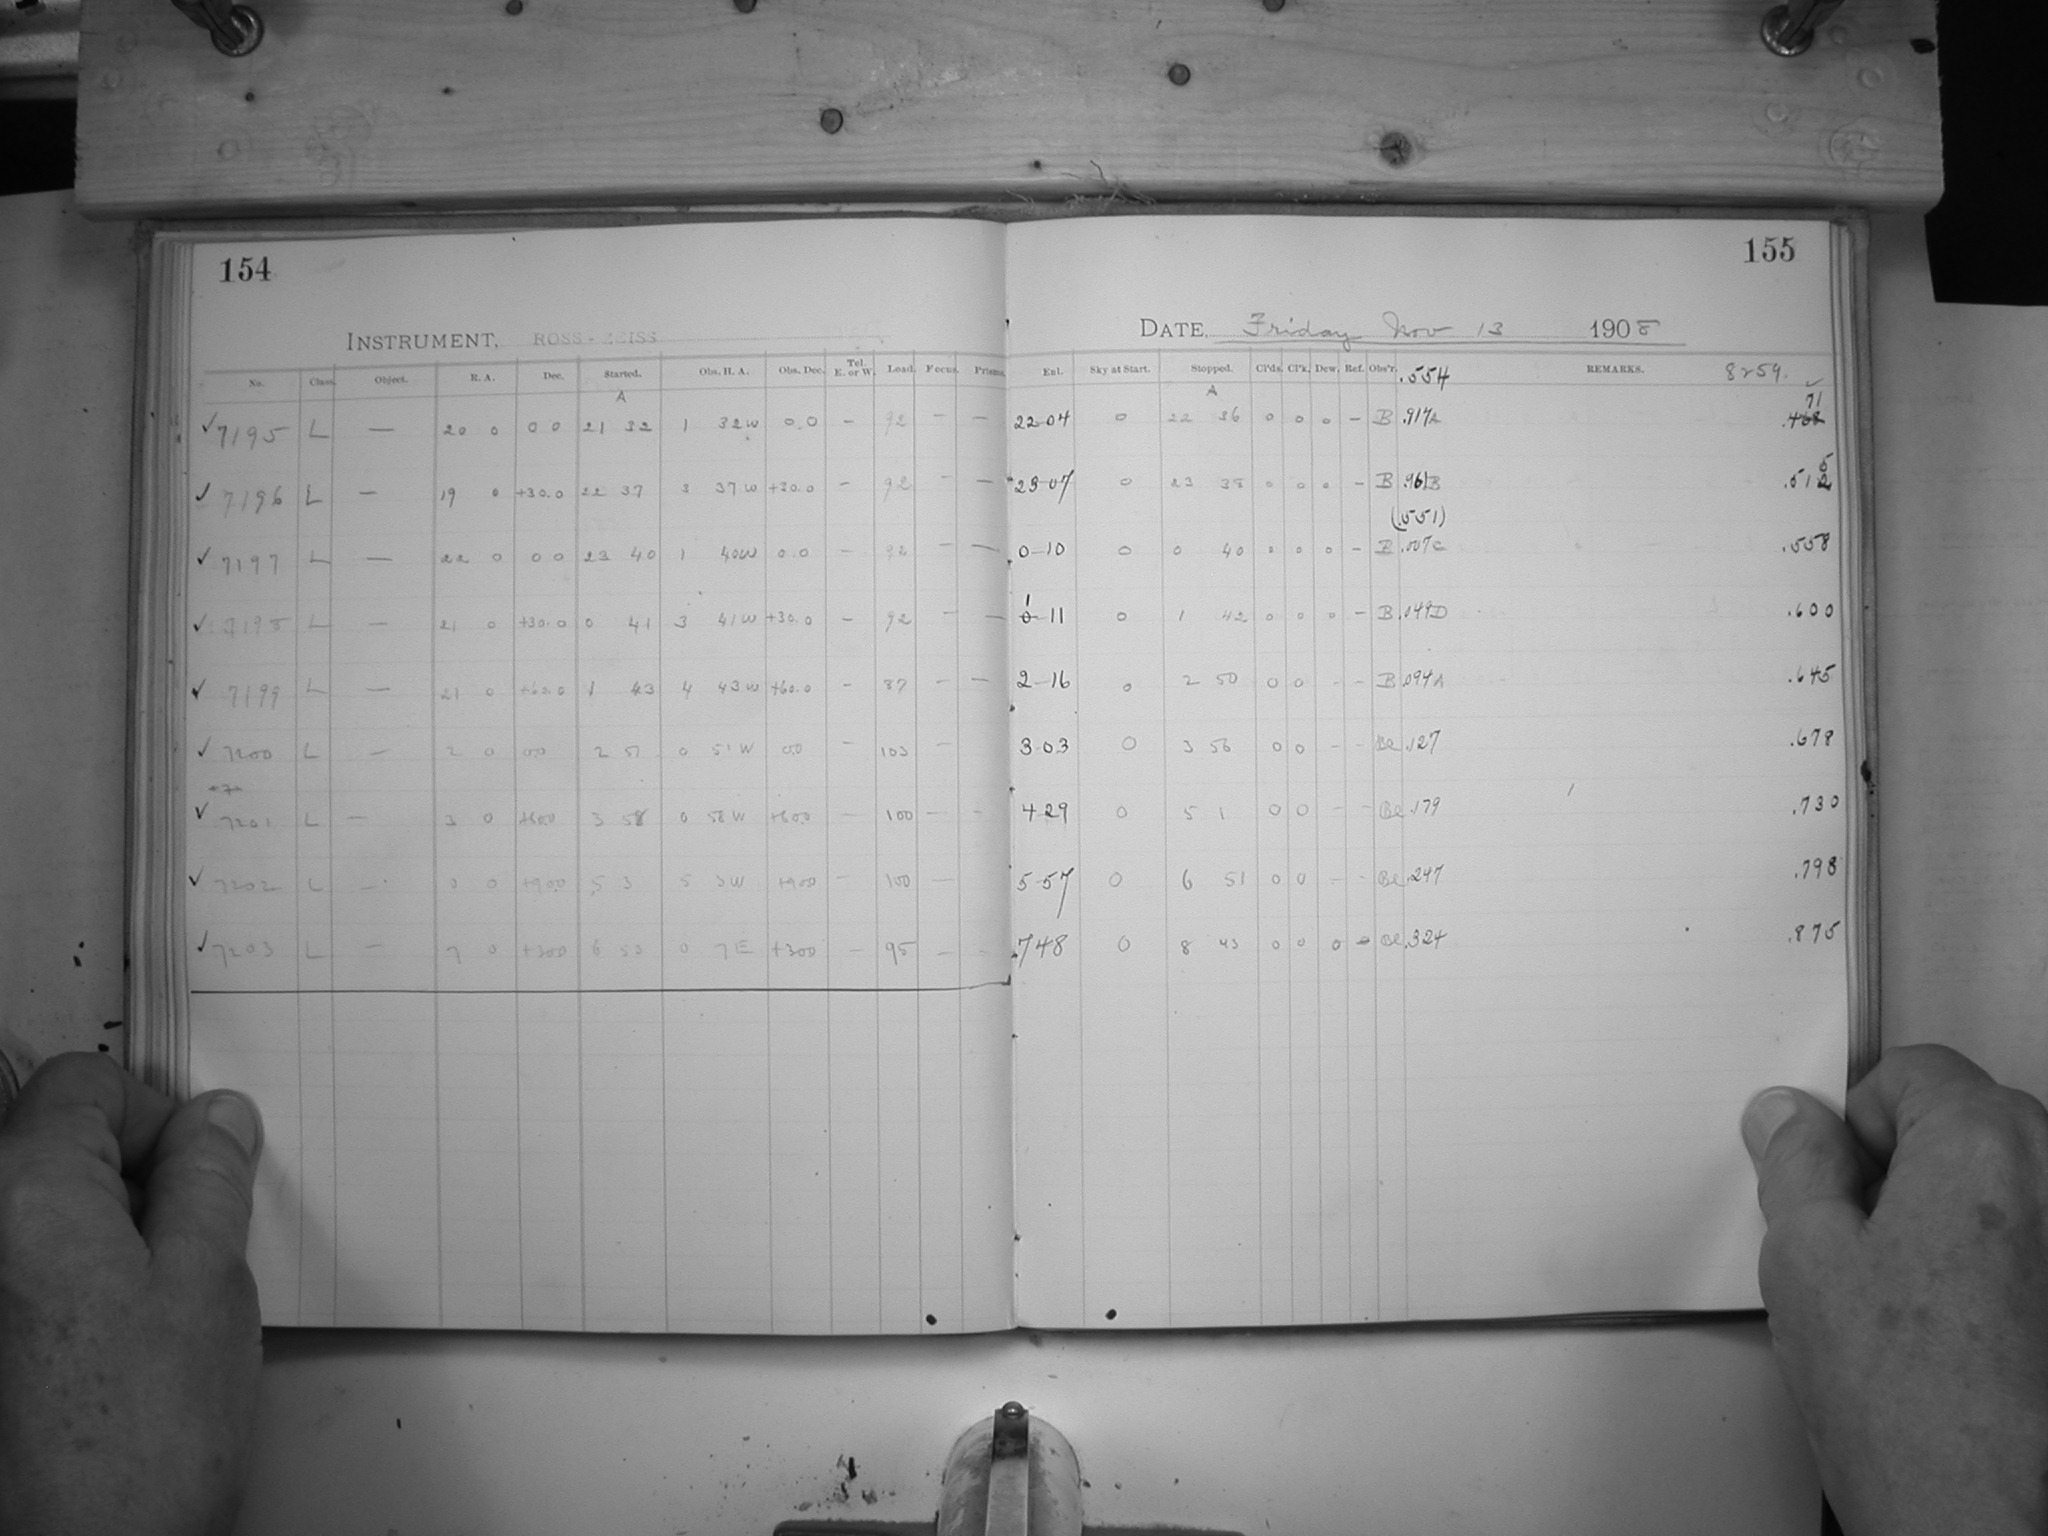 154
155
INSTRUMENT, ROSS-ZEISS
DATE Friday Nov 13 1908
No. Class. Object. R. A. Dec. Started. Obs. H. A. Obs. Dec. Tel. E. or W. Load. Focus. Prisms. Enl. Sky at Start. Stopped. Cl'ds. Cl'k. Dew. Ref. Obs'r. .554 REMARKS. 8259.
A A 71
✓ 7195 L — 20 0 0 0 21 32 1 32 W 0.0 – 92 – — 22-04 0 22 36 0 0 0 – B .917A .468
5
✓ 7196 L — 19 0 +30.0 22 37 3 37 W +30.0 – 92 – — 23-07 0 23 38 0 0 0 – B .961B .512
(.551)
✓ 7197 L — 22 0 0 0 23 40 1 40 W 0.0 – 92 – — 0-10 0 0 40 0 0 0 – B .007C .558
1
✓ 7198 L — 21 0 +30.0 0 41 3 41 W +30.0 – 92 – — 0-11 0 1 42 0 0 0 – B .049D .600
✓ 7199 L — 21 0 +60.0 1 43 4 43 W +60.0 – 87 – — 2-16 0 2 50 0 0 – – B .094A .645
✓ 7200 L — 2 0 0.0 2 51 0 51 W 0.0 – 103 – 3-03 0 3 56 0 0 – – Be .127 .678
✓ 7201 L — 3 0 +60.0 3 58 0 58 W +60.0 — 100 — – 4-29 0 5 1 0 0 – – Be .179 .730
✓ 7202 L — 0 0 +90.0 5 3 5 3 W +90.0 – 100 — 5-57 0 6 51 0 0 – – Be .247 .798
✓ 7203 L — 7 0 +30.0 6 53 0 7 E +30.0 – 95 – – 7 48 0 8 43 0 0 0 – Be .324 .875